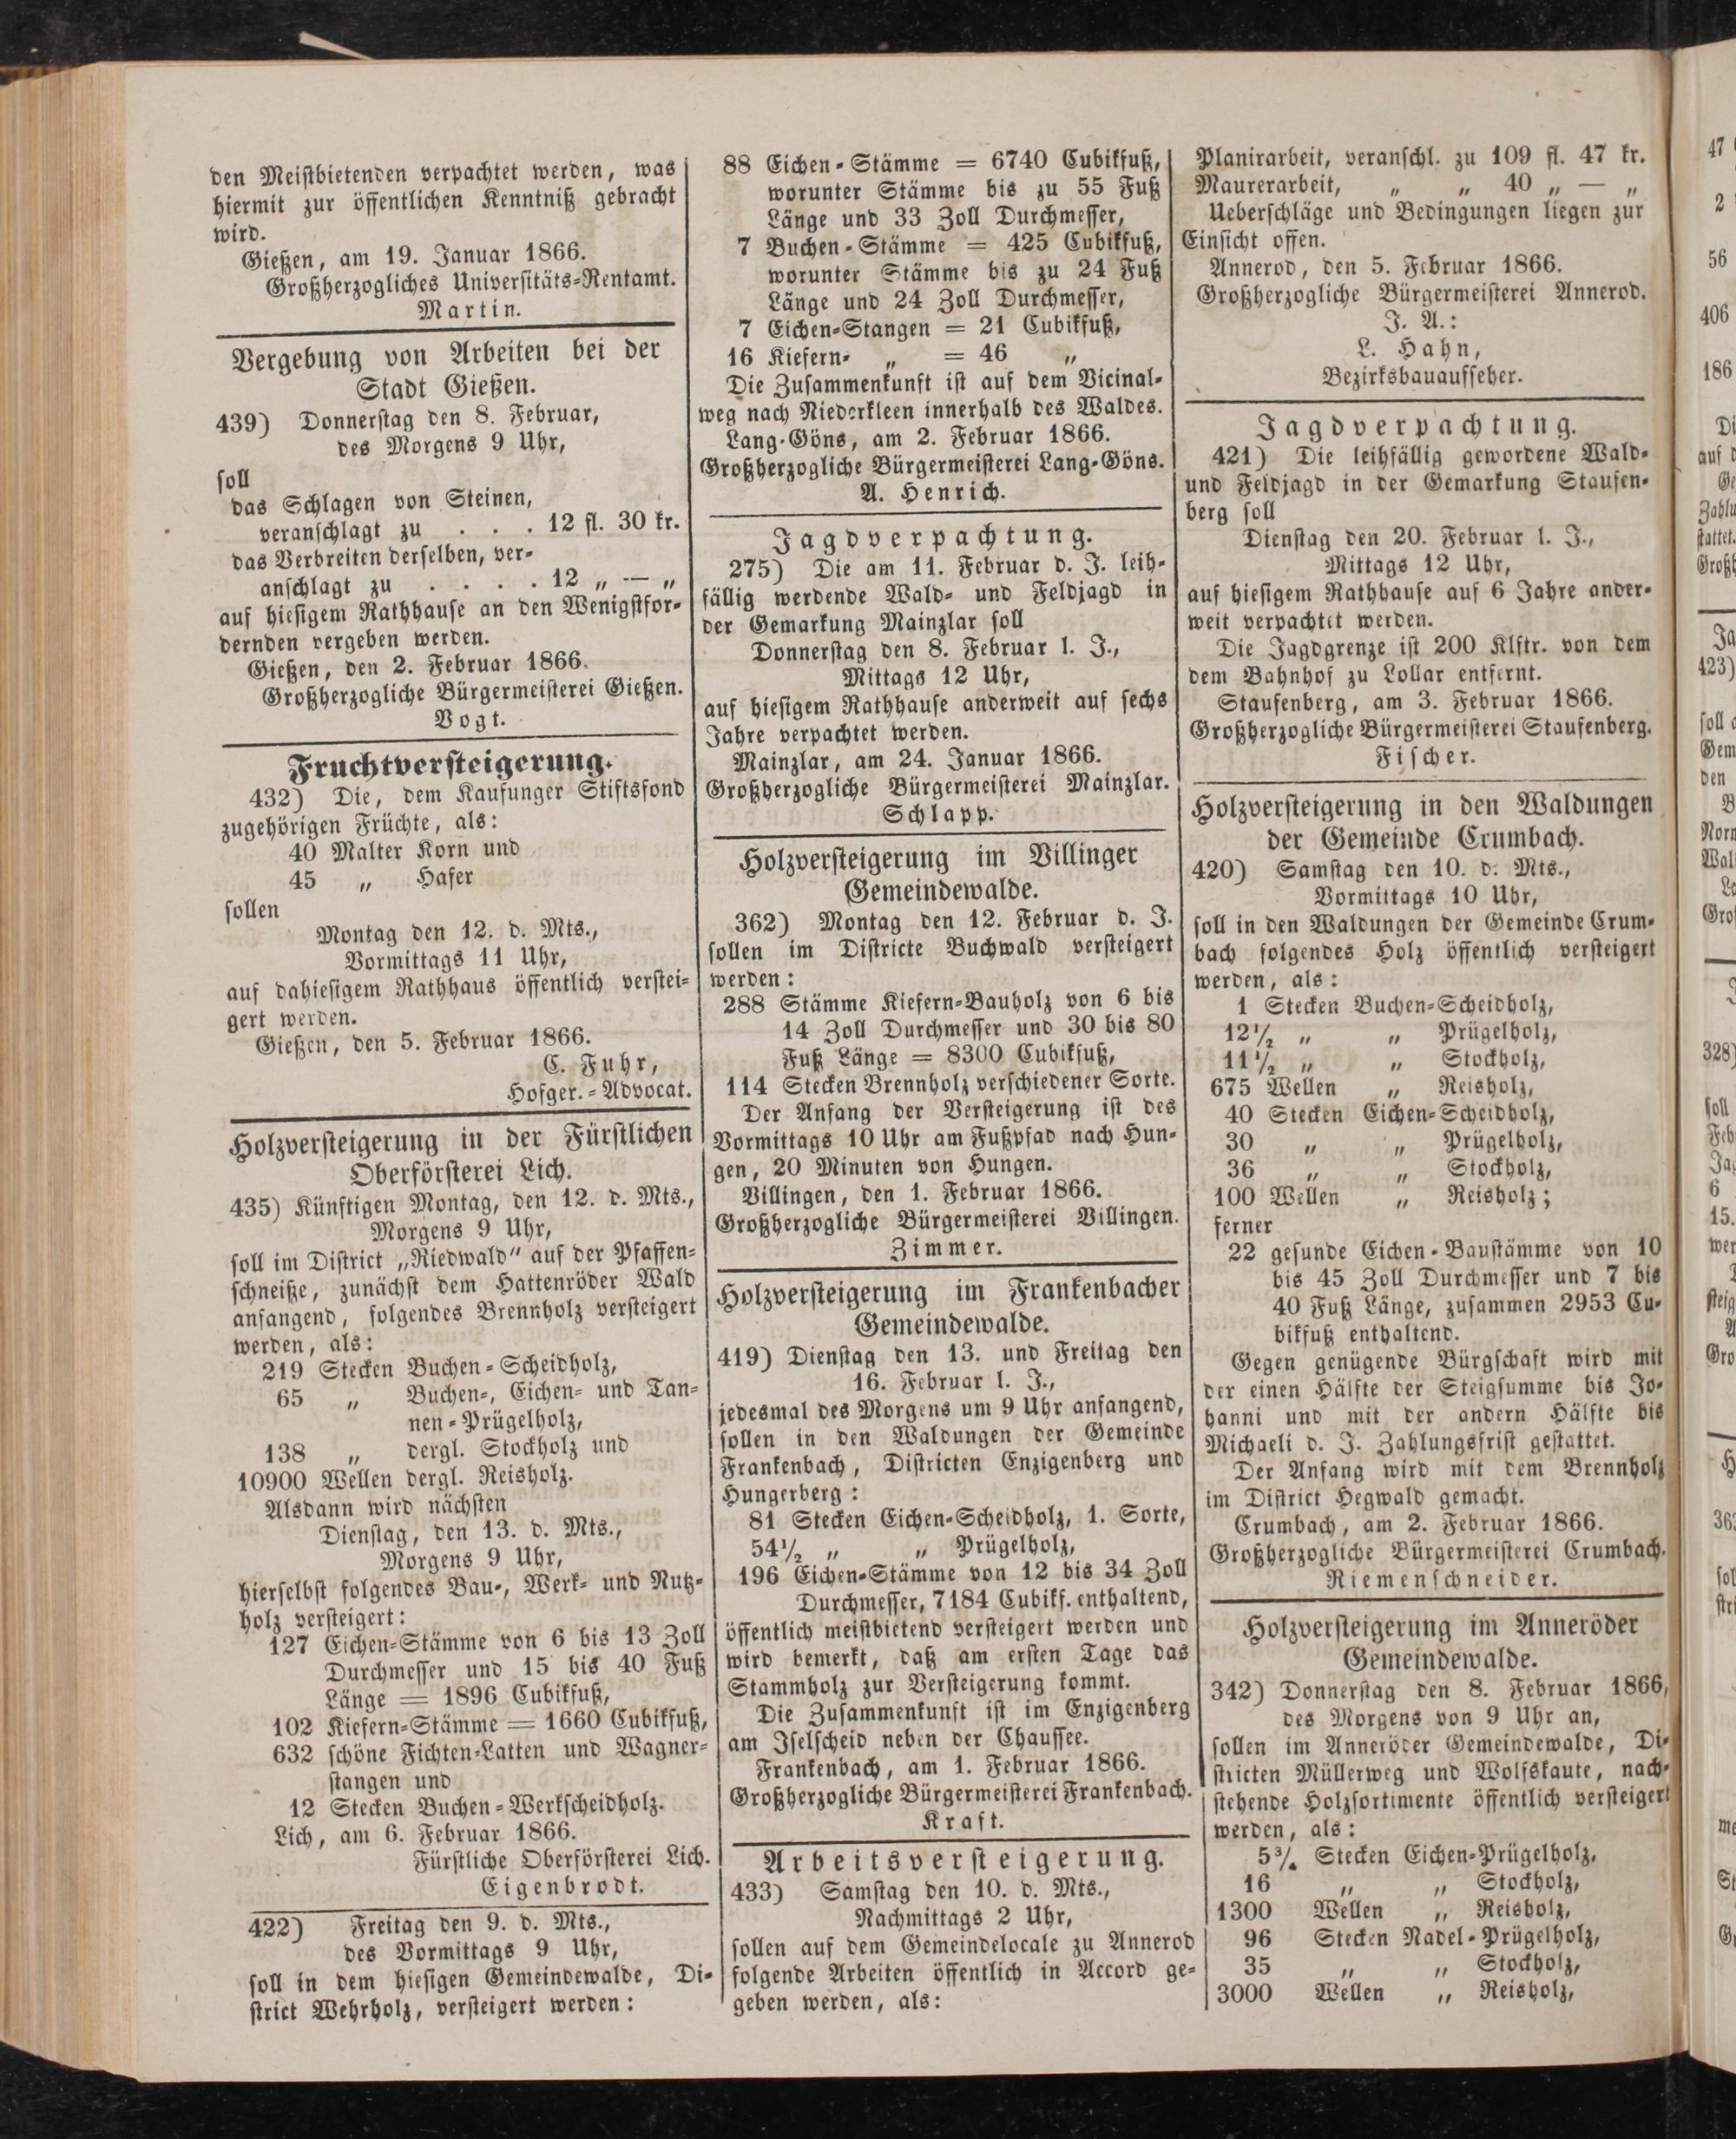 den Meiſtbietenden verpachtet werden, was
hiermit zur öffentlichen Kenntniß gebracht
wird.
Gießen, am 19. Januar 1866.
Großherzogliches Univerſitäts-Rentamt.
Martin.
Vergebung von Arbeiten bei der
Stadt Gießen.
439) Donnerſtag den 8. Februar,
des Morgens 9 Uhr,
ſoll
das Schlagen von Steinen,
veranſchlagt zu . . . 12 fl. 30 kr.
das Verbreiten derſelben, ver-
anſchlagt zu . . . . 12 „ — „
auf hieſigem Rathhauſe an den Wenigſtfor-
dernden vergeben werden.
Gießen, den 2. Februar 1866.
Großherzogliche Bürgermeiſterei Gießen.
Vogt.
Fruchtverſteigerung.
432) Die, dem Kaufunger Stiftsfond
zugehörigen Früchte, als:
40 Malter Korn und
45 „ Hafer
ſollen
Montag den 12. d. Mts.,
Vormittags 11 Uhr,
auf dahieſigem Rathhaus öffentlich verſtei-
gert werden.
Gießen, den 5. Februar 1866.
C. Fuhr,
Hofger.-Advocat.
Holzverſteigerung in der Fürſtlichen
Oberförſterei Lich.
435) Künftigen Montag, den 12. d. Mts.,
Morgens 9 Uhr,
ſoll im Diſtrict „Riedwald“ auf der Pfaffen-
ſchneiße, zunächſt dem Hattenröder Wald
anfangend, folgendes Brennholz verſteigert
werden, als:
219 Stecken Buchen-Scheidholz,
65 „ Buchen-, Eichen- und Tan-
nen-Prügelholz,
138 „ dergl. Stockholz und
10900 Wellen dergl. Reisholz.
Alsdann wird nächſten
Dienſtag, den 13. d. Mts.,
Morgens 9 Uhr,
hierſelbſt folgendes Bau-, Werk- und Nutz-
holz verſteigert:
127 Eichen-Stämme von 6 bis 13 Zoll
Durchmeſſer und 15 bis 40 Fuß
Länge = 1896 Cubikfuß,
102 Kiefern-Stämme = 1660 Cubikfuß,
632 ſchöne Fichten-Latten und Wagner-
ſtangen und
12 Stecken Buchen-Werkſcheidholz.
Lich, am 6. Februar 1866.
Fürſtliche Oberförſterei Lich.
Eigenbrodt.
422) Freitag den 9. d. Mts.,
des Vormittags 9 Uhr,
ſoll in dem hieſigen Gemeindewalde, Di-
ſtrict Wehrholz, verſteigert werden:
88 Eichen-Stämme = 6740 Cubikfuß,
worunter Stämme bis zu 55 Fuß
Länge und 33 Zoll Durchmeſſer,
7 Buchen-Stämme = 425 Cubikfuß,
worunter Stämme bis zu 24 Fuß
Länge und 24 Zoll Durchmeſſer,
7 Eichen-Stangen = 21 Cubikfuß,
16 Kiefern- „ = 46 „
Die Zuſammenkunft iſt auf dem Vicinal-
weg nach Niederkleen innerhalb des Waldes.
Lang-Göns, am 2. Februar 1866.
Großherzogliche Bürgermeiſterei Lang-Göns.
A. Henrich.
Jagdverpachtung.
275) Die am 11. Februar d. J. leih-
fällig werdende Wald- und Feldjagd in
der Gemarkung Mainzlar ſoll
Donnerſtag den 8. Februar l. J.,
Mittags 12 Uhr,
auf hieſigem Rathhauſe anderweit auf ſechs
Jahre verpachtet werden.
Mainzlar, am 24. Januar 1866.
Großherzogliche Bürgermeiſterei Mainzlar.
Schlapp.
Holzverſteigerung im Villinger
Gemeindewalde.
362) Montag den 12. Februar d. J.
ſollen im Diſtricte Buchwald verſteigert
werden:
288 Stämme Kiefern-Bauholz von 6 bis
14 Zoll Durchmeſſer und 30 bis 80
Fuß Länge = 8300 Cubikfuß,
114 Stecken Brennholz verſchiedener Sorte.
Der Anfang der Verſteigerung iſt des
Vormittags 10 Uhr am Fußpfad nach Hun-
gen, 20 Minuten von Hungen.
Villingen, den 1. Februar 1866.
Großherzogliche Bürgermeiſterei Villingen.
Zimmer.
Holzverſteigerung im Frankenbacher
Gemeindewalde.
419) Dienſtag den 13. und Freitag den
16. Februar l. J.,
jedesmal des Morgens um 9 Uhr anfangend,
ſollen in den Waldungen der Gemeinde
Frankenbach, Diſtricten Enzigenberg und
Hungerberg:
81 Stecken Eichen-Scheidholz, 1. Sorte,
54½ „ „ Prügelholz,
196 Eichen-Stämme von 12 bis 34 Zoll
Durchmeſſer, 7184 Cubikf. enthaltend,
öffentlich meiſtbietend verſteigert werden und
wird bemerkt, daß am erſten Tage das
Stammholz zur Verſteigerung kommt.
Die Zuſammenkunft iſt im Enzigenberg
am Iſelſcheid neben der Chauſſee.
Frankenbach, am 1. Februar 1866.
Großherzogliche Bürgermeiſterei Frankenbach.
Kraft.
Arbeitsverſteigerung.
433) Samſtag den 10. d. Mts.,
Nachmittags 2 Uhr,
ſollen auf dem Gemeindelocale zu Annerod
folgende Arbeiten öffentlich in Accord ge-
geben werden, als:
Planirarbeit, veranſchl. zu 109 fl. 47 kr.
Maurerarbeit, „ „ 40 „ — „
Ueberſchläge und Bedingungen liegen zur
Einſicht offen.
Annerod, den 5. Februar 1866.
Großherzogliche Bürgermeiſterei Annerod.
J. A.:
L. Hahn,
Bezirksbauaufſeher.
Jagdverpachtung.
421) Die leihfällig gewordene Wald-
und Feldjagd in der Gemarkung Staufen-
berg ſoll
Dienſtag den 20. Februar l. J.,
Mittags 12 Uhr,
auf hieſigem Rathhauſe auf 6 Jahre ander-
weit verpachtet werden.
Die Jagdgrenze iſt 200 Klftr. von dem
dem Bahnhof zu Lollar entfernt.
Staufenberg, am 3. Februar 1866.
Großherzogliche Bürgermeiſterei Staufenberg.
Fiſcher.
Holzverſteigerung in den Waldungen
der Gemeinde Crumbach.
420) Samſtag den 10. d. Mts.,
Vormittags 10 Uhr,
ſoll in den Waldungen der Gemeinde Crum-
bach folgendes Holz öffentlich verſteigert
werden, als:
1 Stecken Buchen-Scheidholz,
12½ „ „ Prügelholz,
11½ „ „ Stockholz,
675 Wellen „ Reisholz,
40 Stecken Eichen-Scheidholz,
30 „ „ Prügelholz,
36 „ „ Stockholz,
100 Wellen „ Reisholz;
ferner
22 geſunde Eichen-Bauſtämme von 10
bis 45 Zoll Durchmeſſer und 7 bis
40 Fuß Länge, zuſammen 2953 Cu-
bikfuß enthaltend.
Gegen genügende Bürgſchaft wird mit
der einen Hälfte der Steigſumme bis Jo-
hanni und mit der andern Hälfte bis
Michaeli d. J. Zahlungsfriſt geſtattet.
Der Anfang wird mit dem Brennholz
im Diſtrict Hegwald gemacht.
Crumbach, am 2. Februar 1866.
Großherzogliche Bürgermeiſterei Crumbach.
Riemenſchneider.
Holzverſteigerung im Anneröder
Gemeindewalde.
342) Donnerſtag den 8. Februar 1866,
des Morgens von 9 Uhr an,
ſollen im Anneröder Gemeindewalde, Di-
ſtricten Müllerweg und Wolfskaute, nach-
ſtehende Holzſortimente öffentlich verſteigert
werden, als:
5¾ Stecken Eichen-Prügelholz,
16 „ „ Stockholz,
1300 Wellen „ Reisholz,
96 Stecken Nadel-Prügelholz,
35 „ „ Stockholz,
3000 Wellen „ Reisholz,